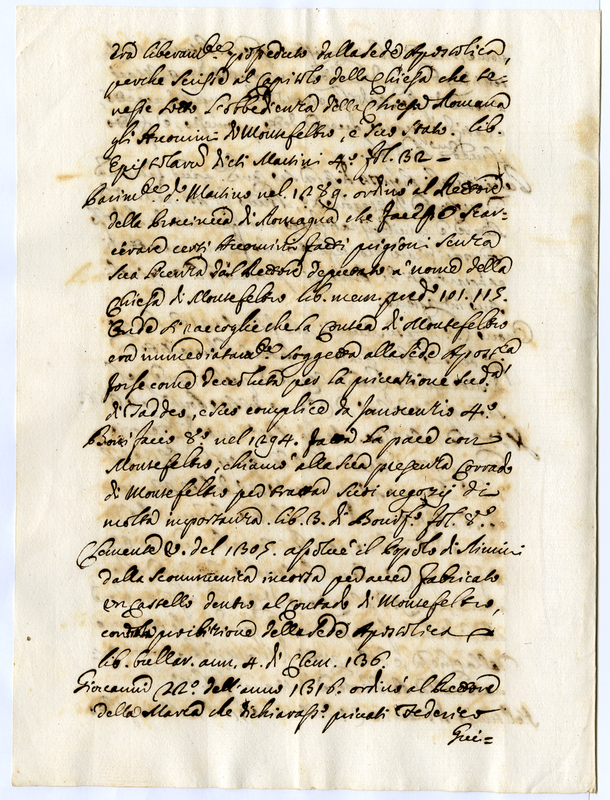 era liberam.te posseduto dalla sede Apostolica,
perche scrisse al Capitolo della Chiesa che te-
nesse sotto l'obbedienza della Chiesa Romana
gli Huomini di Montefeltro, e suo stato. lib.
Epistolarũ dicti Martini 4.° fol. 32 =
Parim.te d.° Martino nel 1289. ordinò al Rettore
della Provincia di Romagna che facesse scar-
cerare certi Huomini fatti prigioni senza
sua licenza dal Rettore deputato a nome della
Chiesa di Montefeltro lib. mem. pred.° 101. 115.
Onde si raccoglie che la Contea di Montefeltro
era immediatam.te soggetta alla Sede Apos.ca
forse come decaduta per la privazione sud.a
di Taddeo, e suo complice da Innocenzio 4.°
Bonifacio 8.° nel 1294. fatta la pace con
Montefeltro, chiamò alla sua presenza Corrado
di Montefeltro per trattar suoi negozij di
molta importanza. lib. B. di Bonif.° fol. 8.°
Clemente V. del 1305. assolue il Popolo di Rimini
dalla scommunica incorsa per aver fabricato
un Castello dentro al Contado di Montefeltro,
contro la proibizione della Sede Apostolica
lib. bullar. ann. 4. di Clem. 136.
Giovanni 22.° dell'anno 1316. ordinò al Rettore
della Marca che dichiarass.e privati Federico
Gui=